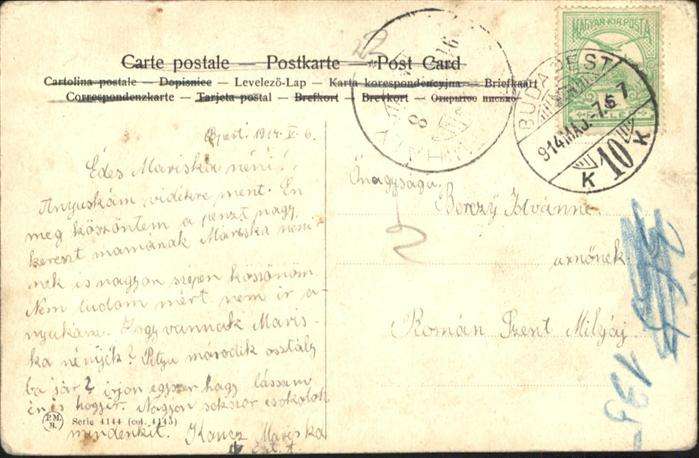 Carte postale — Postkarte — Post Card
Cartolina postale — Dopisnice — Levelező-Lap — Karta korespondencyjna — Briefkaart
Correspondenzkarte — Tarjeta postal — Brefkort — Brevkort — Открытое письмо
MAGYAR KIR. POSTA
BUDAPEST
914 MÁJ. -7.
K 10 K
1914 V. 6.
Édes Mariska néni!
Anyuskám vidékre ment. Én
meg köszöntem a pénzt nagy
kereszt mamának Mariska néni-
nek is nagyon szépen köszönöm
Nem tudom mért nem ír a-
nyukám. Hogy vannak Maris-
ka néniék? Petyu második osztály
ba jár? írjon egyszer hagy lássam
én is hogyír. Nagyon sokszor csókolok
mindenkit. Kancz Mariska
Önagysága
Istvánné
urnőnek
Román Szent Mihály
P.M.B.
Serie 4144 (col. 4145)